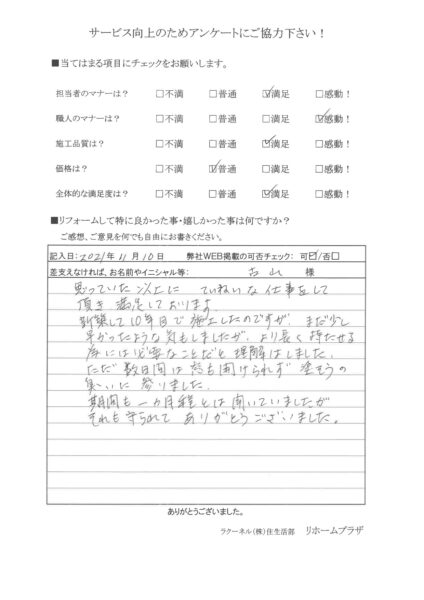 サービス向上のためアンケートにご協力下さい！
■当てはまる項目にチェックをお願いします。
担当者のマナーは？ □不満 □普通 ☑満足 □感動！
職人のマナーは？ □不満 □普通 □満足 ☑感動！
施工品質は？ □不満 □普通 ☑満足 □感動！
価格は？ □不満 ☑普通 □満足 □感動！
全体的な満足度は？ □不満 □普通 ☑満足 □感動！
■リフォームして特に良かった事・嬉しかった事は何ですか？
ご感想、ご意見を何でも自由にお書きください。
記入日：2021年11月10日 弊社WEB掲載の可否チェック： 可☑/否□
差支えなければ、お名前やイニシャル等： 古山 様
思っていた以上に ていねいな仕事をして
頂き 満足しております。
新築して10年目で施工したのですが、まだ少し
早かったような気もしましたが、より長く持たせる
為には必要なことだと理解はしました。
ただ 数日間は 窓も開けられず 塗そうの
臭いに 参りました。
期間も一カ月程とは聞いていましたが
それも守られて ありがとうございました。
ありがとうございました。
ラクーネル（株）住生活部 リホームプラザ